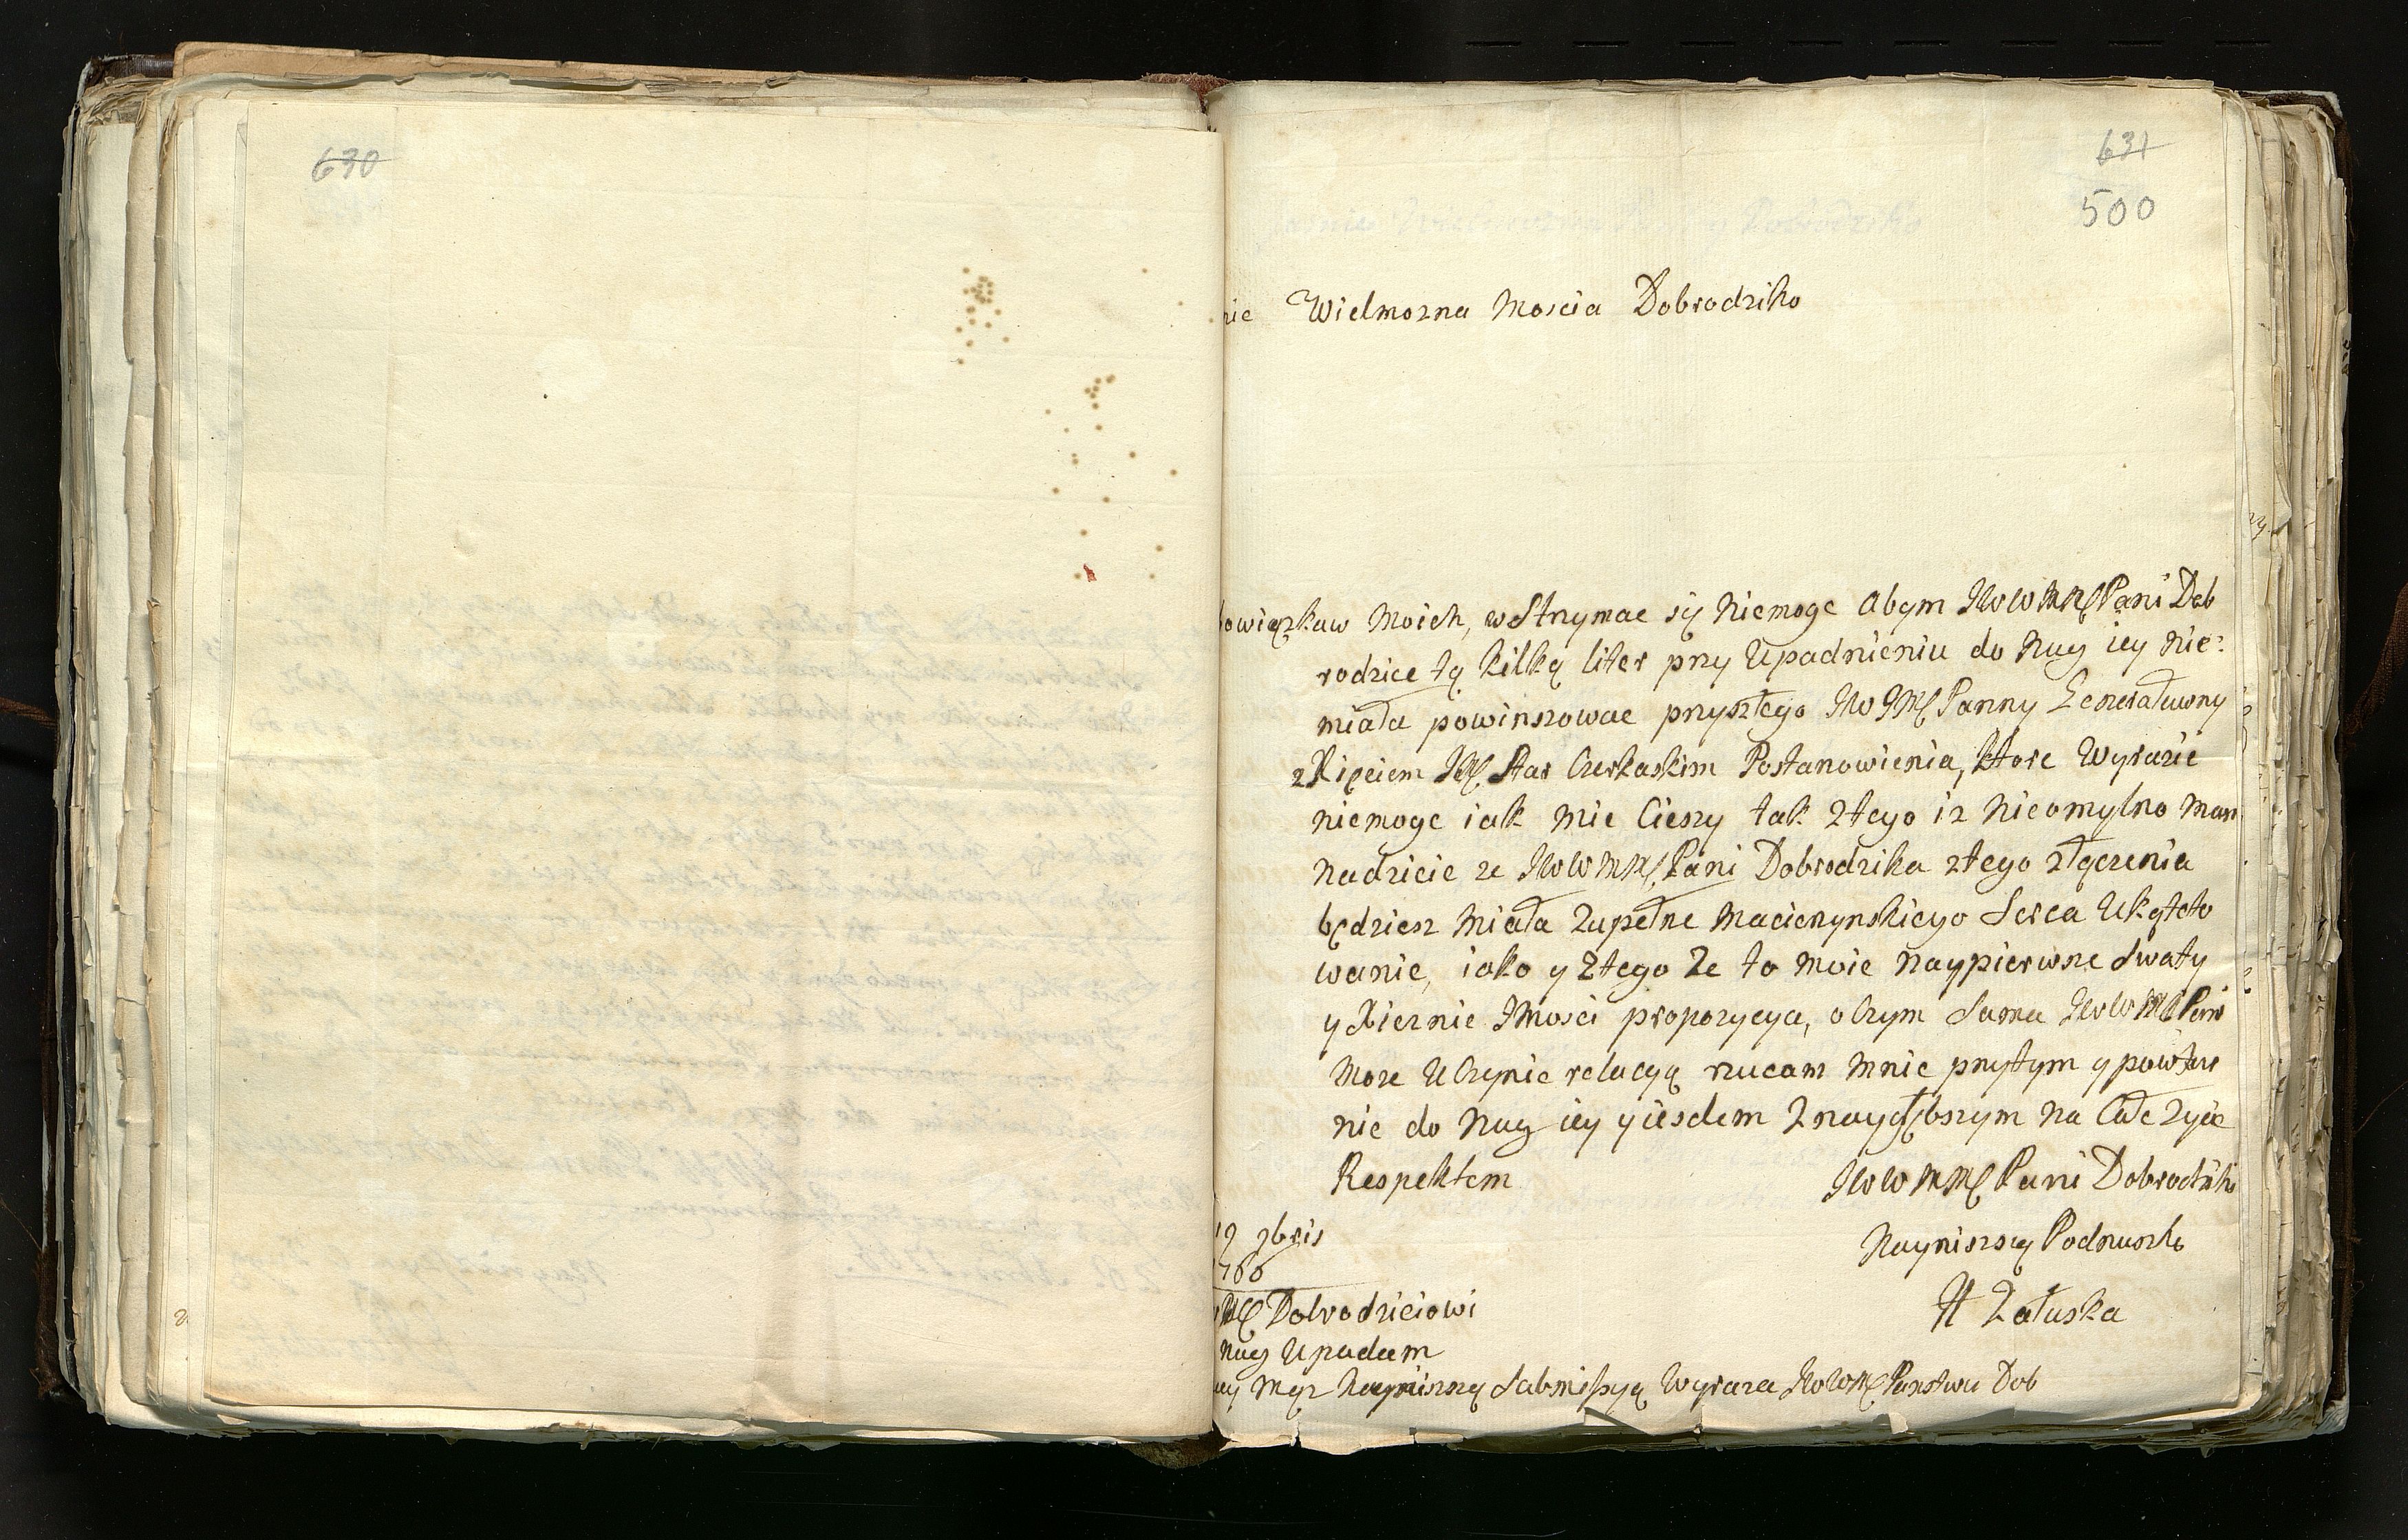 630
631
500
nie Wielmozna Moscia Dobrodziko
bowiązkuw Moich, wstrymac się Niemoge Abym JWWMMP Pani Dob
rodzice tą kilką liter przy Upadnieniu do Nug iey nie:
miała powinszowac przyszłego JWJMP Panny Generałuwny
z Xięciem JM Star Czerkaskim Postanowienia, ktore Wyrazic
niemoge iak mie Cieszy tak ztego iz Nieomylno mam
nadzieie ze JWWMM Pani Dobrodzika ztego złączenia
będziesz Miała Zupełne Macierzynskiego Serca Ukątęto
wanie, iako y Ztego Ze to moie naypierwsze swaty
y Xieznie JMosci propozycya, o Czym Sama JWWMM Pani
Moze UCzynic relacyą rzucam Mnie przytym y powtur
nie do Nug iey y iesdem Znaygłębszym na Całe Zycie
Respektem JWWMM Pani Dobrodziki
19 gbris Nayniszszą Podnuszko
1766
JMC Dobrodzieiowi A Załuska
Nug Upadam
Mąz Nayniszszą Sabmissyą Wyraza JWWM Panstwu Dob